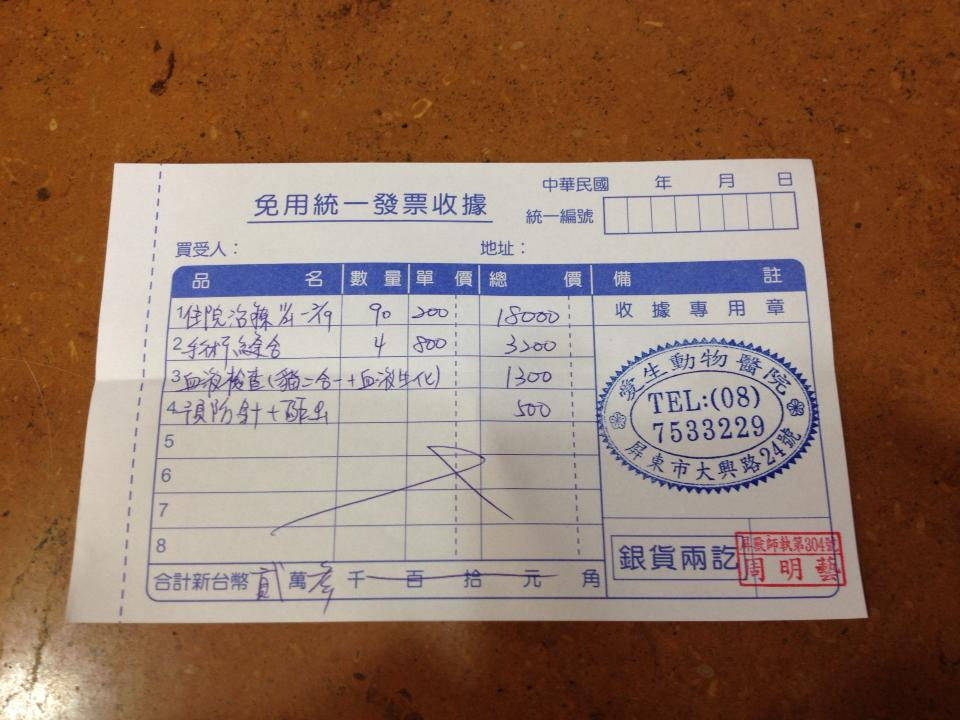 中華民國 年 月 日
免用統一發票收據
統一編號
買受人： 地址：
品名 數量 單價 總價 備註
1 住院治療 -2/9 90 200 18000
收據專用章
2 手術縫合 4 800 3200
3 血液檢查(貓二合一+血液生化) 1300
4 預防針+驅蟲 500
5
6
7
8
愛生動物醫院
TEL:(08)
7533229
屏東市大興路24號
銀貨兩訖
屏獸師執第304號
周明藝
合計新台幣 貳 萬 參 千 百 拾 元 角